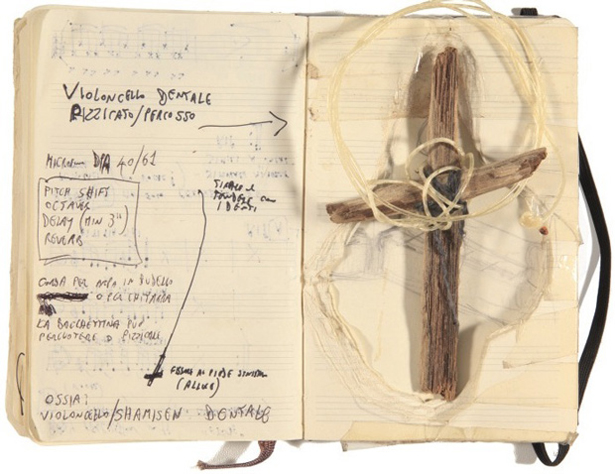 VIOLONCELLO DENTALE
PIZZICATO/PERCOSSO
DPA 40/61
PITCH SHIFT
OCTAVES
DELAY (MIN 3")
REVERB
TIRARE E
TENDERE CON
I DENTI
CORDA PER ARPA IN BUDELLO
O PER CHITARRA
LA BACCHETTINA PUÒ
PERCUOTERE O PIZZICARE
FERMO AL PIEDE SINISTRO
(ALLUCE)
OSSIA:
VIOLONCELLO/SHAMISEN DENTALE